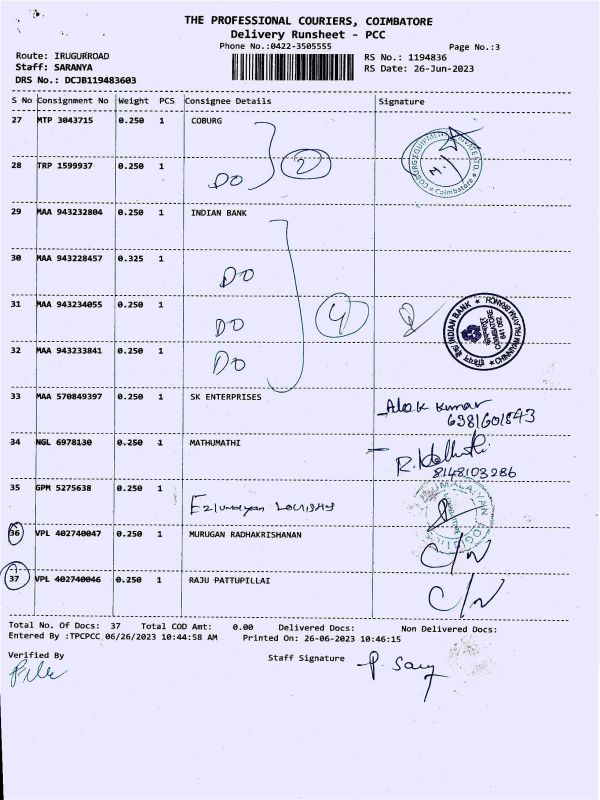 THE PROFESSIONAL COURIERS, COIMBATORE
Delivery Runsheet - PCC
Phone No.:0422-3505555
Page No.:3
Route: IRUGURROAD
Staff: SARANYA
DRS No.: DCJB119483603
RS No.: 1194836
RS Date: 26-Jun-2023
S No Consignment No Weight PCS Consignee Details Signature
27 MTP 3043715 0.250 1 COBURG
28 TRP 1599937 0.250 1 DO 2
COBURG EQUIPMENTS PRIVATE LTD. * Coimbatore *
29 MAA 943232804 0.250 1 INDIAN BANK
30 MAA 943228457 0.325 1 DO
31 MAA 943234055 0.250 1 DO 4
32 MAA 943233841 0.250 1 DO
INDIAN BANK * CHINNIYAM PALAYAM BRANCH
COIMBATORE
641 062
33 MAA 570849397 0.250 1 SK ENTERPRISES Alok kumar
6381601843
34 NGL 6978130 0.250 1 MATHUMATHI R.
8148103286
35 GPM 5275638 0.250 1
36 VPL 402740047 0.250 1 MURUGAN RADHAKRISHANAN C/N
37 VPL 402740046 0.250 1 RAJU PATTUPILLAI C/N
Total No. Of Docs: 37 Total COD Amt: 0.00 Delivered Docs: Non Delivered Docs:
Entered By :TPCPCC 06/26/2023 10:44:58 AM Printed On: 26-06-2023 10:46:15
Verified By Staff Signature